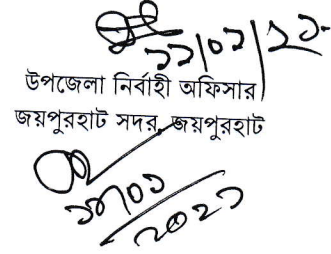 ১১/০১/২১
উপজেলা নির্বাহী অফিসার
জয়পুরহাট সদর, জয়পুরহাট
২০২১